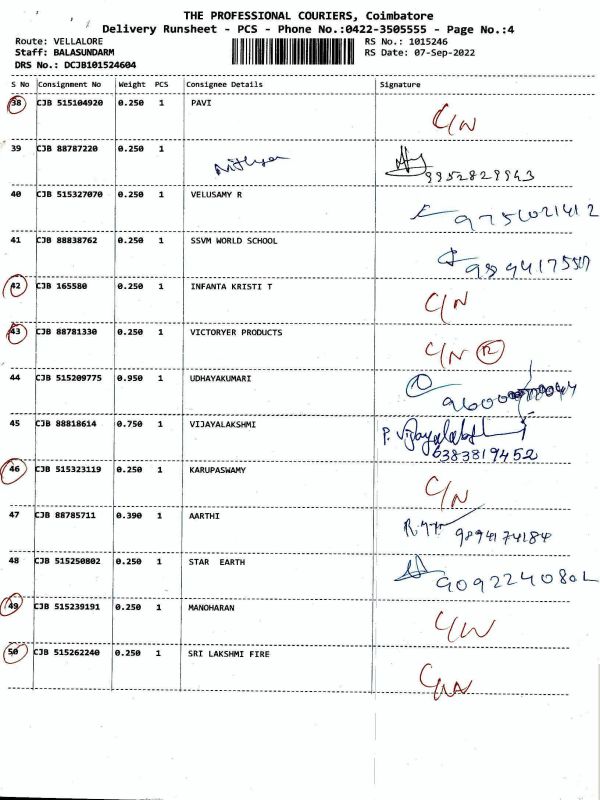 THE PROFESSIONAL COURIERS, Coimbatore
Delivery Runsheet - PCS - Phone No.:0422-3505555 - Page No.:4
Route: VELLALORE
RS No.: 1015246
Staff: BALASUNDARM
RS Date: 07-Sep-2022
DRS No.: DCJB101524604
S No Consignment No Weight PCS Consignee Details Signature
38 CJB 515104920 0.250 1 PAVI C/N
39 CJB 88787220 0.250 1 9952829943
40 CJB 515327070 0.250 1 VELUSAMY R 9751021412
41 CJB 88838762 0.250 1 SSVM WORLD SCHOOL
42 CJB 165580 0.250 1 INFANTA KRISTI T C/N
43 CJB 88781330 0.250 1 VICTORYER PRODUCTS C/N
44 CJB 515209775 0.950 1 UDHAYAKUMARI
45 CJB 88818614 0.750 1 VIJAYALAKSHMI P. Vijayalakshmi
6383819452
46 CJB 515323119 0.250 1 KARUPASWAMY C/N
47 CJB 88785711 0.390 1 AARTHI 9894174184
48 CJB 515250802 0.250 1 STAR EARTH
49 CJB 515239191 0.250 1 MANOHARAN C/N
50 CJB 515262240 0.250 1 SRI LAKSHMI FIRE C/N